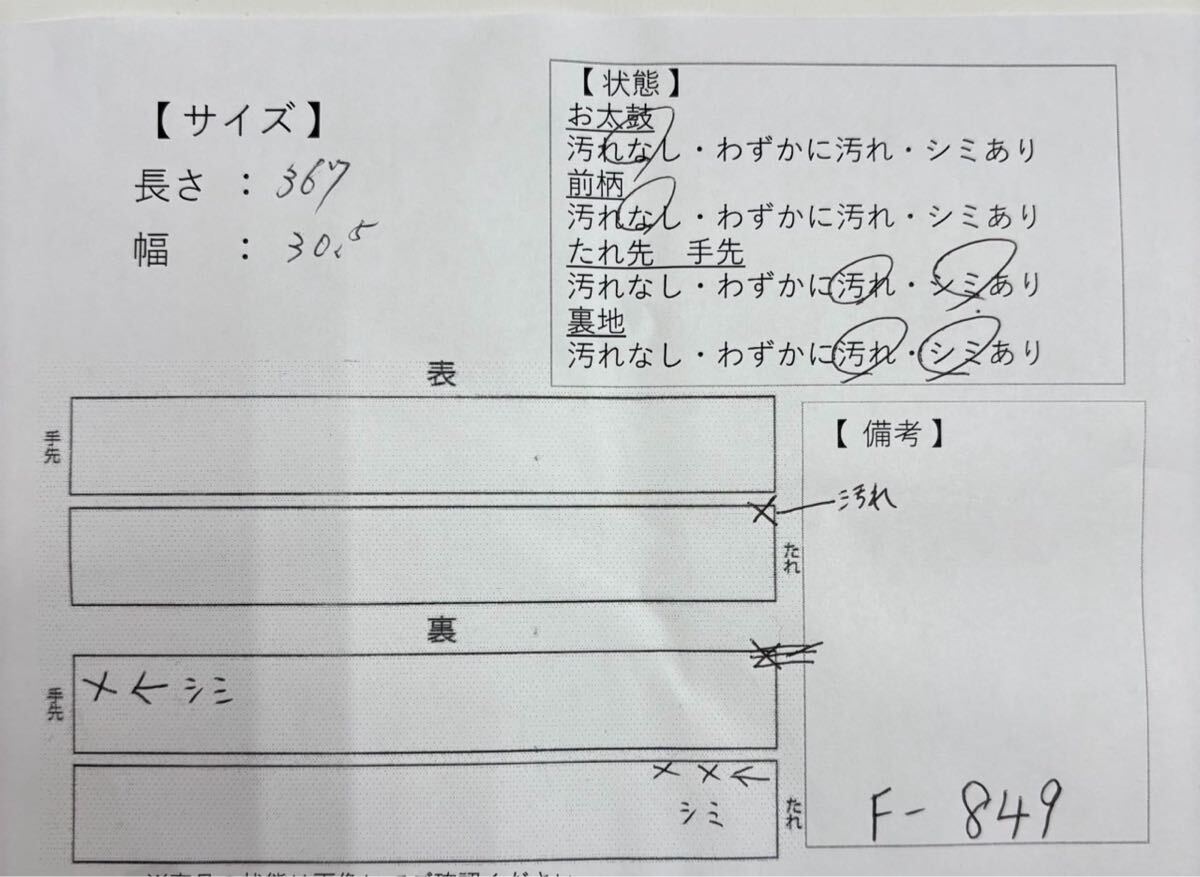 【 サイズ 】
長さ ： 367
幅 ： 30.5
【 状態 】
お太鼓
汚れなし・わずかに汚れ・シミあり
前柄
汚れなし・わずかに汚れ・シミあり
たれ先 手先
汚れなし・わずかに汚れ・シミあり
裏地
汚れなし・わずかに汚れ・シミあり
表
手先
汚れ
たれ
裏
手先
× ← シミ
× × ←
シミ
たれ
【 備考 】
F - 849